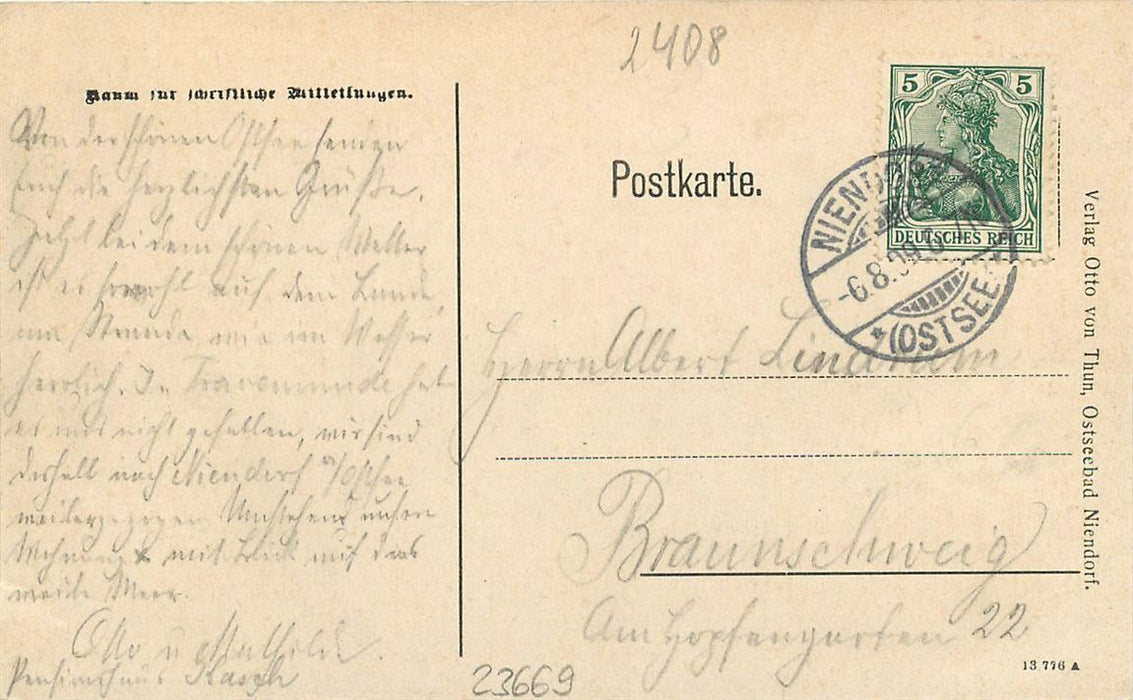 2408
Raum für schriftliche Mitteilungen.
Von der schönen Ostsee senden
Euch die herzlichsten Grüße.
Jetzt bei dem schönen Wetter
ist es sowohl auf dem Lande,
am Strande, wie im Wasser
herrlich. In Travemünde hat
es uns nicht gefallen, wir sind
deshalb nach Niendorf a/Ostsee
weitergezogen Umstehend unsere
Wohnung x mit Blick auf das
weite Meer.
Otto u Mathilde.
Pensionshaus
Postkarte.
5 5
DEUTSCHES REICH
NIENDORF
-6.8.09.6-7N
*(OSTSEE)
Herrn Albert
Braunschweig
Am Hopfengarten 22
Verlag Otto von Thun, Ostseebad Niendorf.
13 776 A
23669